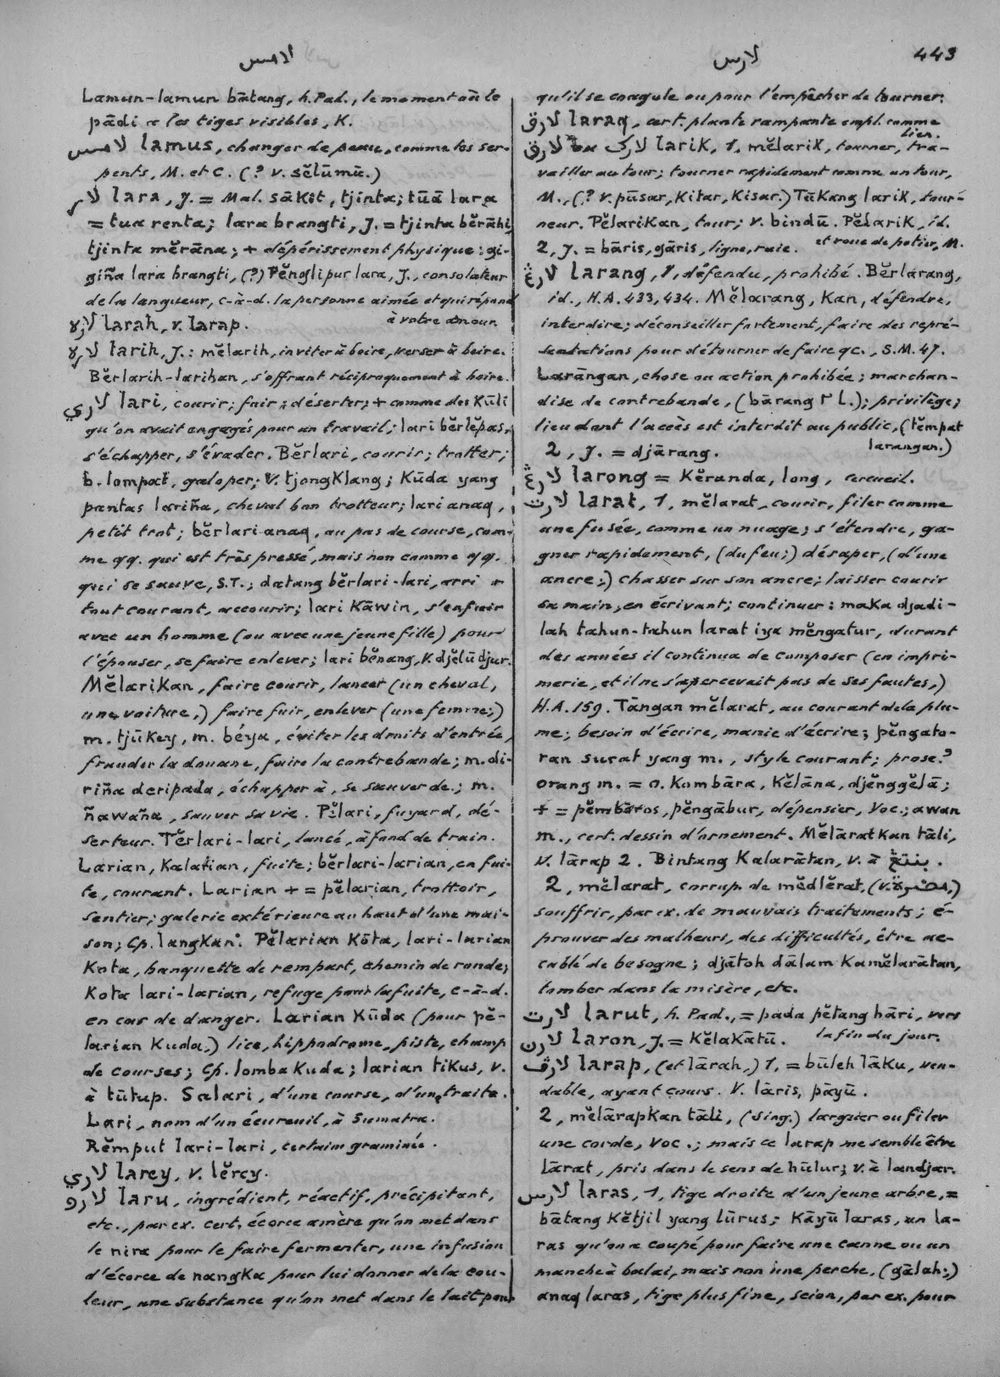 لامس
لارس
443
Lamun-lamun bātang, h. Pad., le moment où le
pādi a les tiges visibles, K.
لامس lamus, changer de peau, comme les ser-
pents, M. et C. (? v. sĕlūmū.)
لار lara, J. = Mal. sākĕt, tjinta; tūā lara
= tua renta; lara brangti, J. = tjinta bĕrāhi,
tjinta mĕrāna; + dépérissement physique: gi-
giña lara brangti, (?) Pĕnglipur lara, J., consolateur
de la langueur, c-à-d. la personne aimée et qui répond
à votre amour.
لاره larah, v. larap.
لاره larih, J.: mĕlarih, inviter à boire, verser à boire.
Bĕrlarih-larihan, s'offrant réciproquement à boire.
لاري lari, courir; fuir; déserter; + comme des Kūli
qu'on avait engagés pour un travail; lari bĕrlĕpas,
s'échapper, s'évader. Bĕrlari, courir; trotter;
b. lompat, galoper; v. tjongKlang; Kūda yang
pantas lariña, cheval bon trotteur; lari anaq,
petit trot; bĕrlari anaq, au pas de course, com-
me qq. qui est très pressé, mais non comme qq.
qui se sauve, S.T.; datang bĕrlari-lari, arri +
tout courant, accourir; lari Kāwin, s'enfuir
avec un homme (ou avec une jeune fille) pour
l'épouser, se faire enlever; lari bĕnang, v. djĕlūdjur.
MĕlariKan, faire courir, lancer (un cheval,
une voiture,) faire fuir, enlever (une femme;)
m. tjūkey, m. béya, éviter les droits d'entrée,
frauder la douane, faire la contrebande; m. di-
riña daripada, échapper à, se sauver de; m.
ñawaña, sauver sa vie. Pĕlari, fuyard, dé-
serteur. Tĕrlari-lari, lancé, à fond de train.
Larian, Kalarian, fuite; bĕrlari-larian, en fui-
te, courant. Larian + = pĕlarian, trottoir,
sentier; galerie extérieure au haut d'une mai-
son; Cp. langKan. Pĕlarian Kōta, lari-larian
Kota, banquette de rempart, chemin de ronde;
Kota lari-larian, refuge pour la fuite, c-à-d.
en cas de danger. Larian Kūda (pour pĕ-
larian Kuda,) lice, hippodrome, piste, champ
de courses; Cp. lomba Kuda; larian tiKus, v.
à tūtup. Salari, d'une course, d'une traite.
Lari, nom d'un écureuil, à Sumatra.
Rĕmput lari-lari, certaine graminée.
لاري larey, v. lĕrey.
لارو laru, ingrédient, réactif, précipitant,
etc., par ex. cert. écorce amère qu'on met dans
le nira pour le faire fermenter, une infusion
d'écorce de nangKa pour lui donner de la cou-
leur, une substance qu'on met dans le lait pour
qu'il se coagule ou pour l'empêcher de tourner.
لارق laraq, cert. plante rampante empl. comme
lien.
لارق ou لارک larik, 1, mĕlariK, tourner, tra-
vailler au tour; tourner rapidement comme un tour,
M., (? v. pūsar, Kitar, Kisar.) TūKang lariK, tour-
neur. PĕlariKan, tour; v. bindū. PĕlariK, id.
et roue de potier, M.
2, J. = bāris, gāris, ligne, raie.
لارڠ larang, 1, défendu, prohibé. Bĕrlārang,
id., H.A. 433, 434. Mĕlarang, Kan, défendre,
interdire; déconseiller fortement, faire des repré-
sentations pour détourner de faire qc., S.M. 47.
Larāngan, chose ou action prohibée; marchan-
dise de contrebande, (bārang ٢ L.); privilège;
lieu dont l'accès est interdit au public, (tĕmpat
larangan.)
2, J. = djārang.
لارڠ larong = Kĕranda, long, cercueil.
لارت larat, 1, mĕlarat, courir, filer comme
une fusée, comme un nuage; s'étendre, ga-
gner rapidement, (du feu;) déraper, (d'une
ancre;) chasser sur son ancre; laisser courir
sa main, en écrivant; continuer: maka djadi-
lah tahun-tahun larat iya mĕngatur, durant
des années il continua de composer (en impri-
merie, et il ne s'apercevait pas de ses fautes,)
H.A. 159. Tāngan mĕlarat, au courant de la plu-
me; besoin d'écrire, manie d'écrire; pĕngata-
ran surat yang m., style courant; prose?
orang m. = o. Kombāra, Kĕlāna, djĕnggĕlā;
+ = pĕmbōros, pĕngābur, dépensier, Voc.; awan
m., cert. dessin d'ornement. MĕlāratKan tāli,
v. lārap 2. Bintang Kalarātan, v. à بنتڠ.
2, mĕlarat, corrup. de mĕdlĕrat, (v. مضرة,)
souffrir, par ex. de mauvais traitements; é-
prouver des malheurs, des difficultés, être ac-
cablé de besogne; djātoh dālam Kamĕlarātan,
tomber dans la misère, etc.
لارت larut, h. Pad., = pada pĕtang hāri, vers
la fin du jour.
لارن laron, J. = KĕlaKātū.
لارڤ larap, (et lārah,) 1, = būleh lāKu, ven-
dable, ayant cours. V. lāris, pāyū.
2, mĕlārapKan tāli, (Sing.) larguer ou filer
une corde, Voc.; mais ce larap me semble être
lārat, pris dans le sens de hūlur; v. à landjar.
لارس laras, 1, tige droite d'un jeune arbre, =
bātang Kĕtjil yang lūrus; Kāyū laras, un la-
ras qu'on a coupé pour faire une canne ou un
manche à balai, mais non une perche, (gālah;)
anaq laras, tige plus fine, scion, par ex. pour